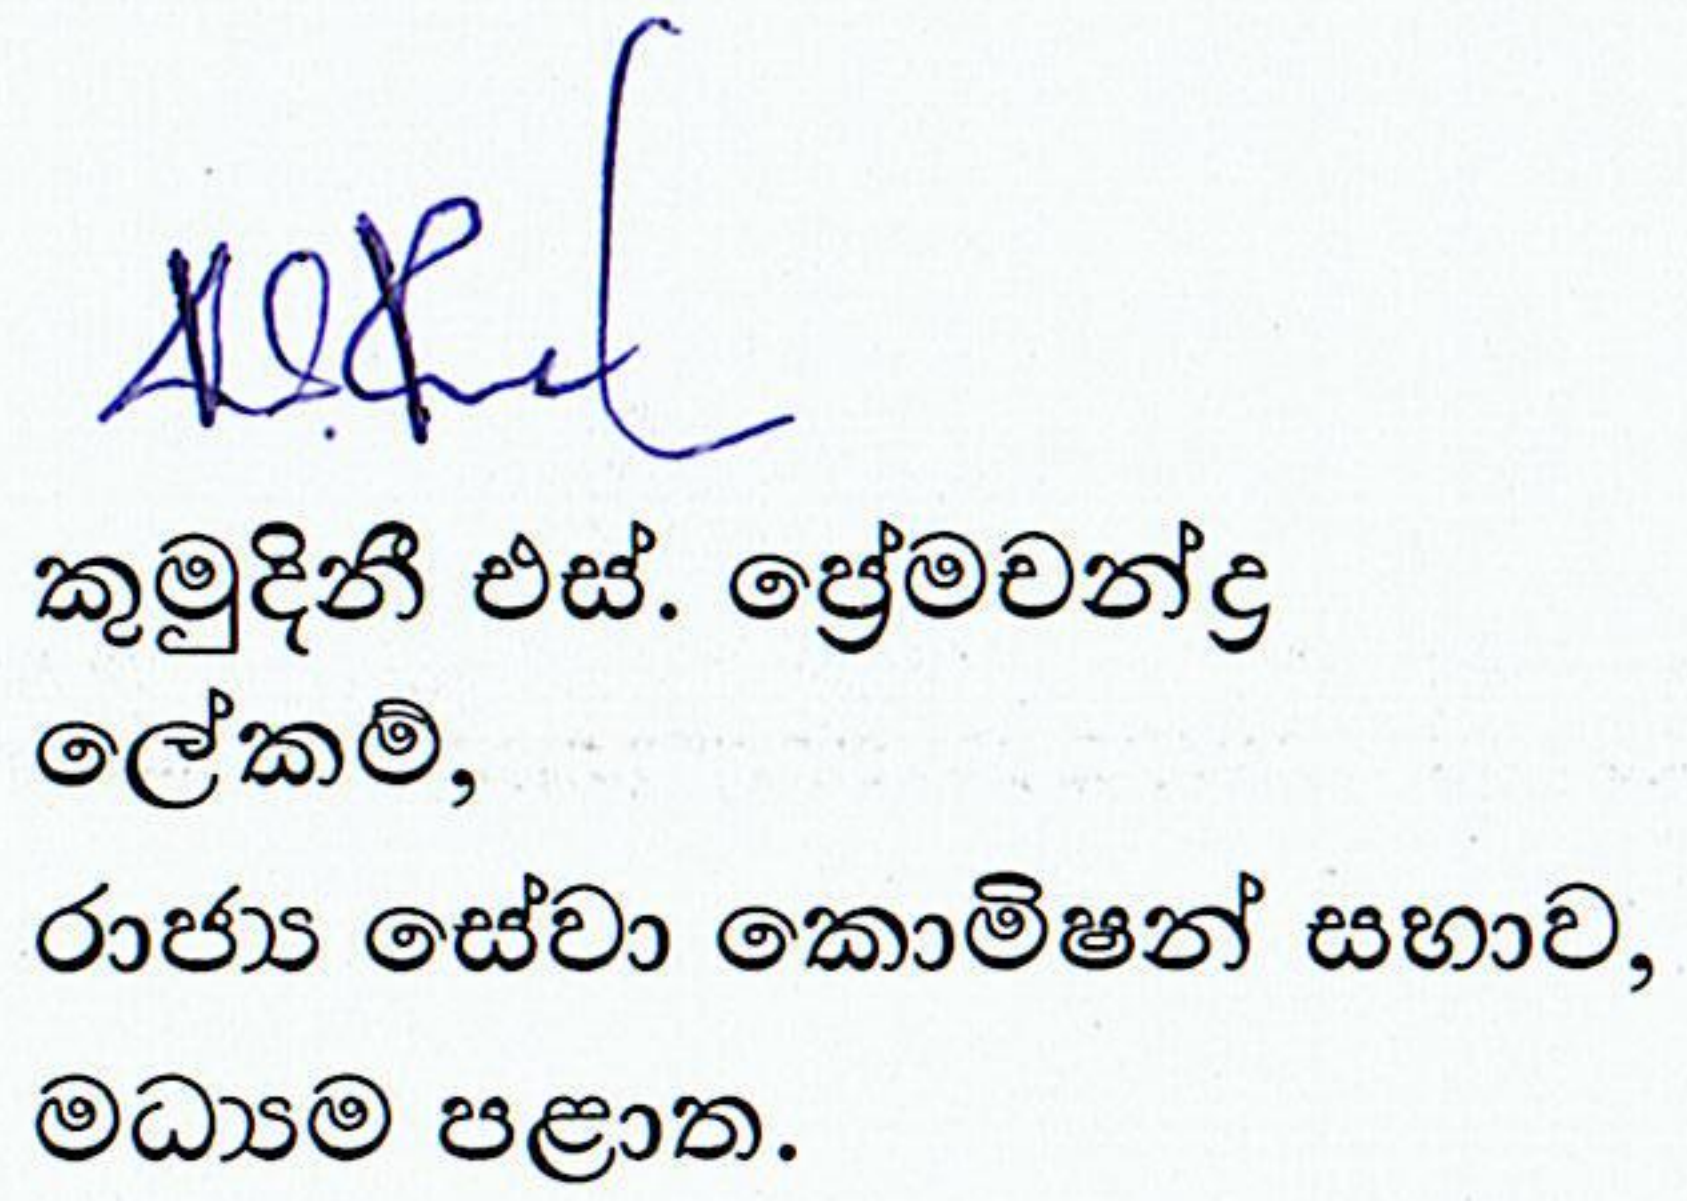 කුමුදිනී එස්. ප්‍රේමචන්ද්‍ර
ලේකම්,
රාජ්‍ය සේවා කොමිෂන් සභාව,
මධ්‍යම පළාත.